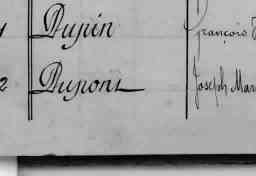 1 Dupin François
2 Dupont Joseph Mar